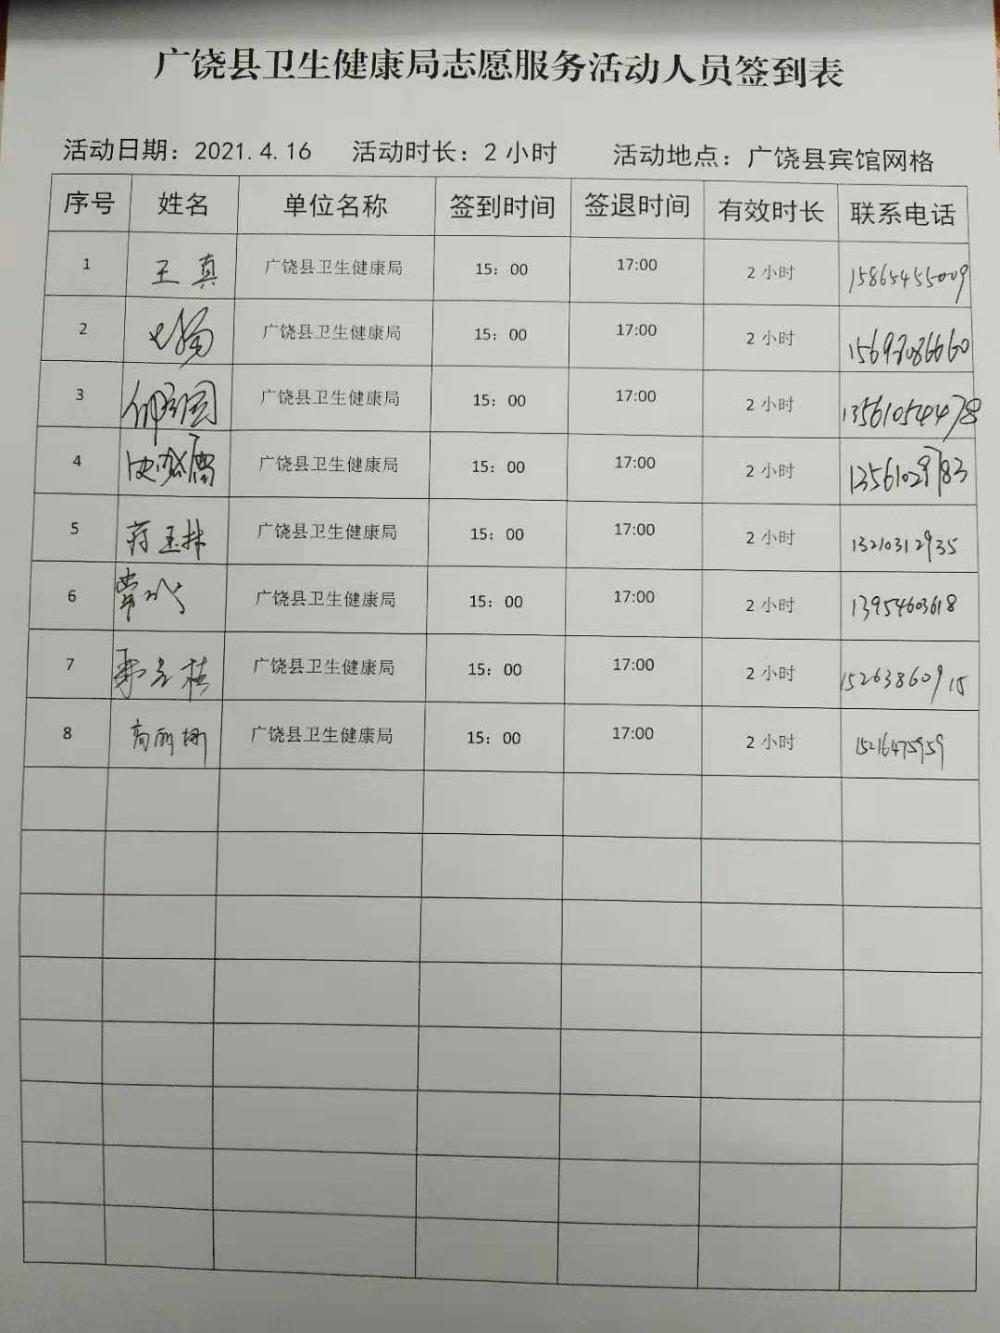 广饶县卫生健康局志愿服务活动人员签到表
活动日期：2021.4.16 活动时长：2小时 活动地点：广饶县宾馆网格
序号 姓名 单位名称 签到时间 签退时间 有效时长 联系电话
1 王真 广饶县卫生健康局 15：00 17:00 2小时 15865455009
2 广饶县卫生健康局 15：00 17:00 2小时
3 广饶县卫生健康局 15：00 17:00 2小时 13561054478
4 广饶县卫生健康局 15：00 17:00 2小时 13561029783
5 蒋玉林 广饶县卫生健康局 15：00 17:00 2小时 13210312935
6 广饶县卫生健康局 15：00 17:00 2小时 13954603618
7 广饶县卫生健康局 15：00 17:00 2小时 15263860915
8 高丽娜 广饶县卫生健康局 15：00 17:00 2小时 15216475959